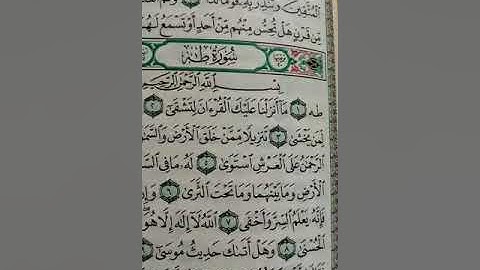 مِّن قَرْنٍ هَلْ تُحِسُّ مِنْهُم مِّنْ أَحَدٍ أَوْ تَسْمَعُ لَهُمْ
سُورَةُ طه
بِسْمِ ٱللَّهِ ٱلرَّحْمَٰنِ ٱلرَّحِيمِ
طه ١ مَآ أَنزَلْنَا عَلَيْكَ ٱلْقُرْءَانَ لِتَشْقَىٰٓ ٢
لِّمَن يَخْشَىٰ ٣ تَنزِيلًا مِّمَّنْ خَلَقَ ٱلْأَرْضَ وَٱلسَّمَ
ٱلرَّحْمَٰنُ عَلَى ٱلْعَرْشِ ٱسْتَوَىٰ ٥ لَهُۥ مَا فِى ٱلسَّ
ٱلْأَرْضِ وَمَا بَيْنَهُمَا وَمَا تَحْتَ ٱلثَّرَىٰ ٦ وَإِن
فَإِنَّهُۥ يَعْلَمُ ٱلسِّرَّ وَأَخْفَى ٧ ٱللَّهُ لَآ إِلَٰهَ إِلَّا هُوَ
ٱلْحُسْنَىٰ ٨ وَهَلْ أَتَىٰكَ حَدِيثُ مُوسَىٰٓ